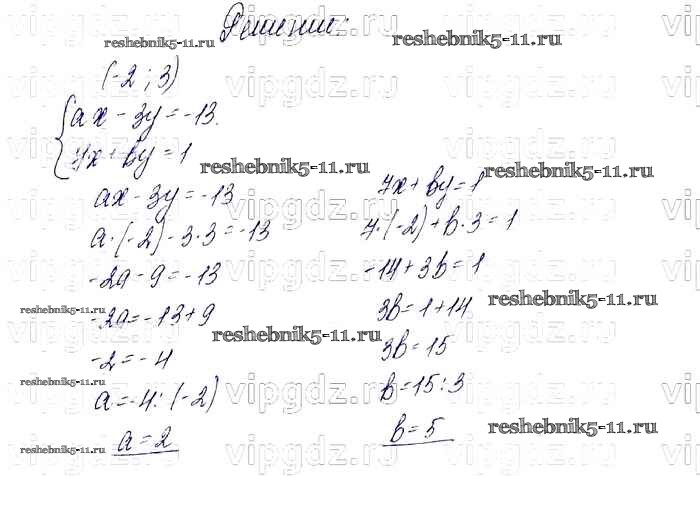 Решение:
(-2; 3)
{ax - 3y = -13.
7x + by = 1
ax - 3y = -13
a·(-2) - 3·3 = -13
-2a - 9 = -13
-2a = -13 + 9
-2 = -4
a = -4 : (-2)
a = 2
7x + by = 1
7·(-2) + b·3 = 1
-14 + 3b = 1
3b = 1 + 14
3b = 15
b = 15 : 3
b = 5
reshebnik5-11.ru
reshebnik5-11.ru
reshebnik5-11.ru
reshebnik5-11.ru
reshebnik5-11.ru
reshebnik5-11.ru
reshebnik5-11.ru
reshebnik5-11.ru
reshebnik5-11.ru
reshebnik5-11.ru
vipgdz.ru